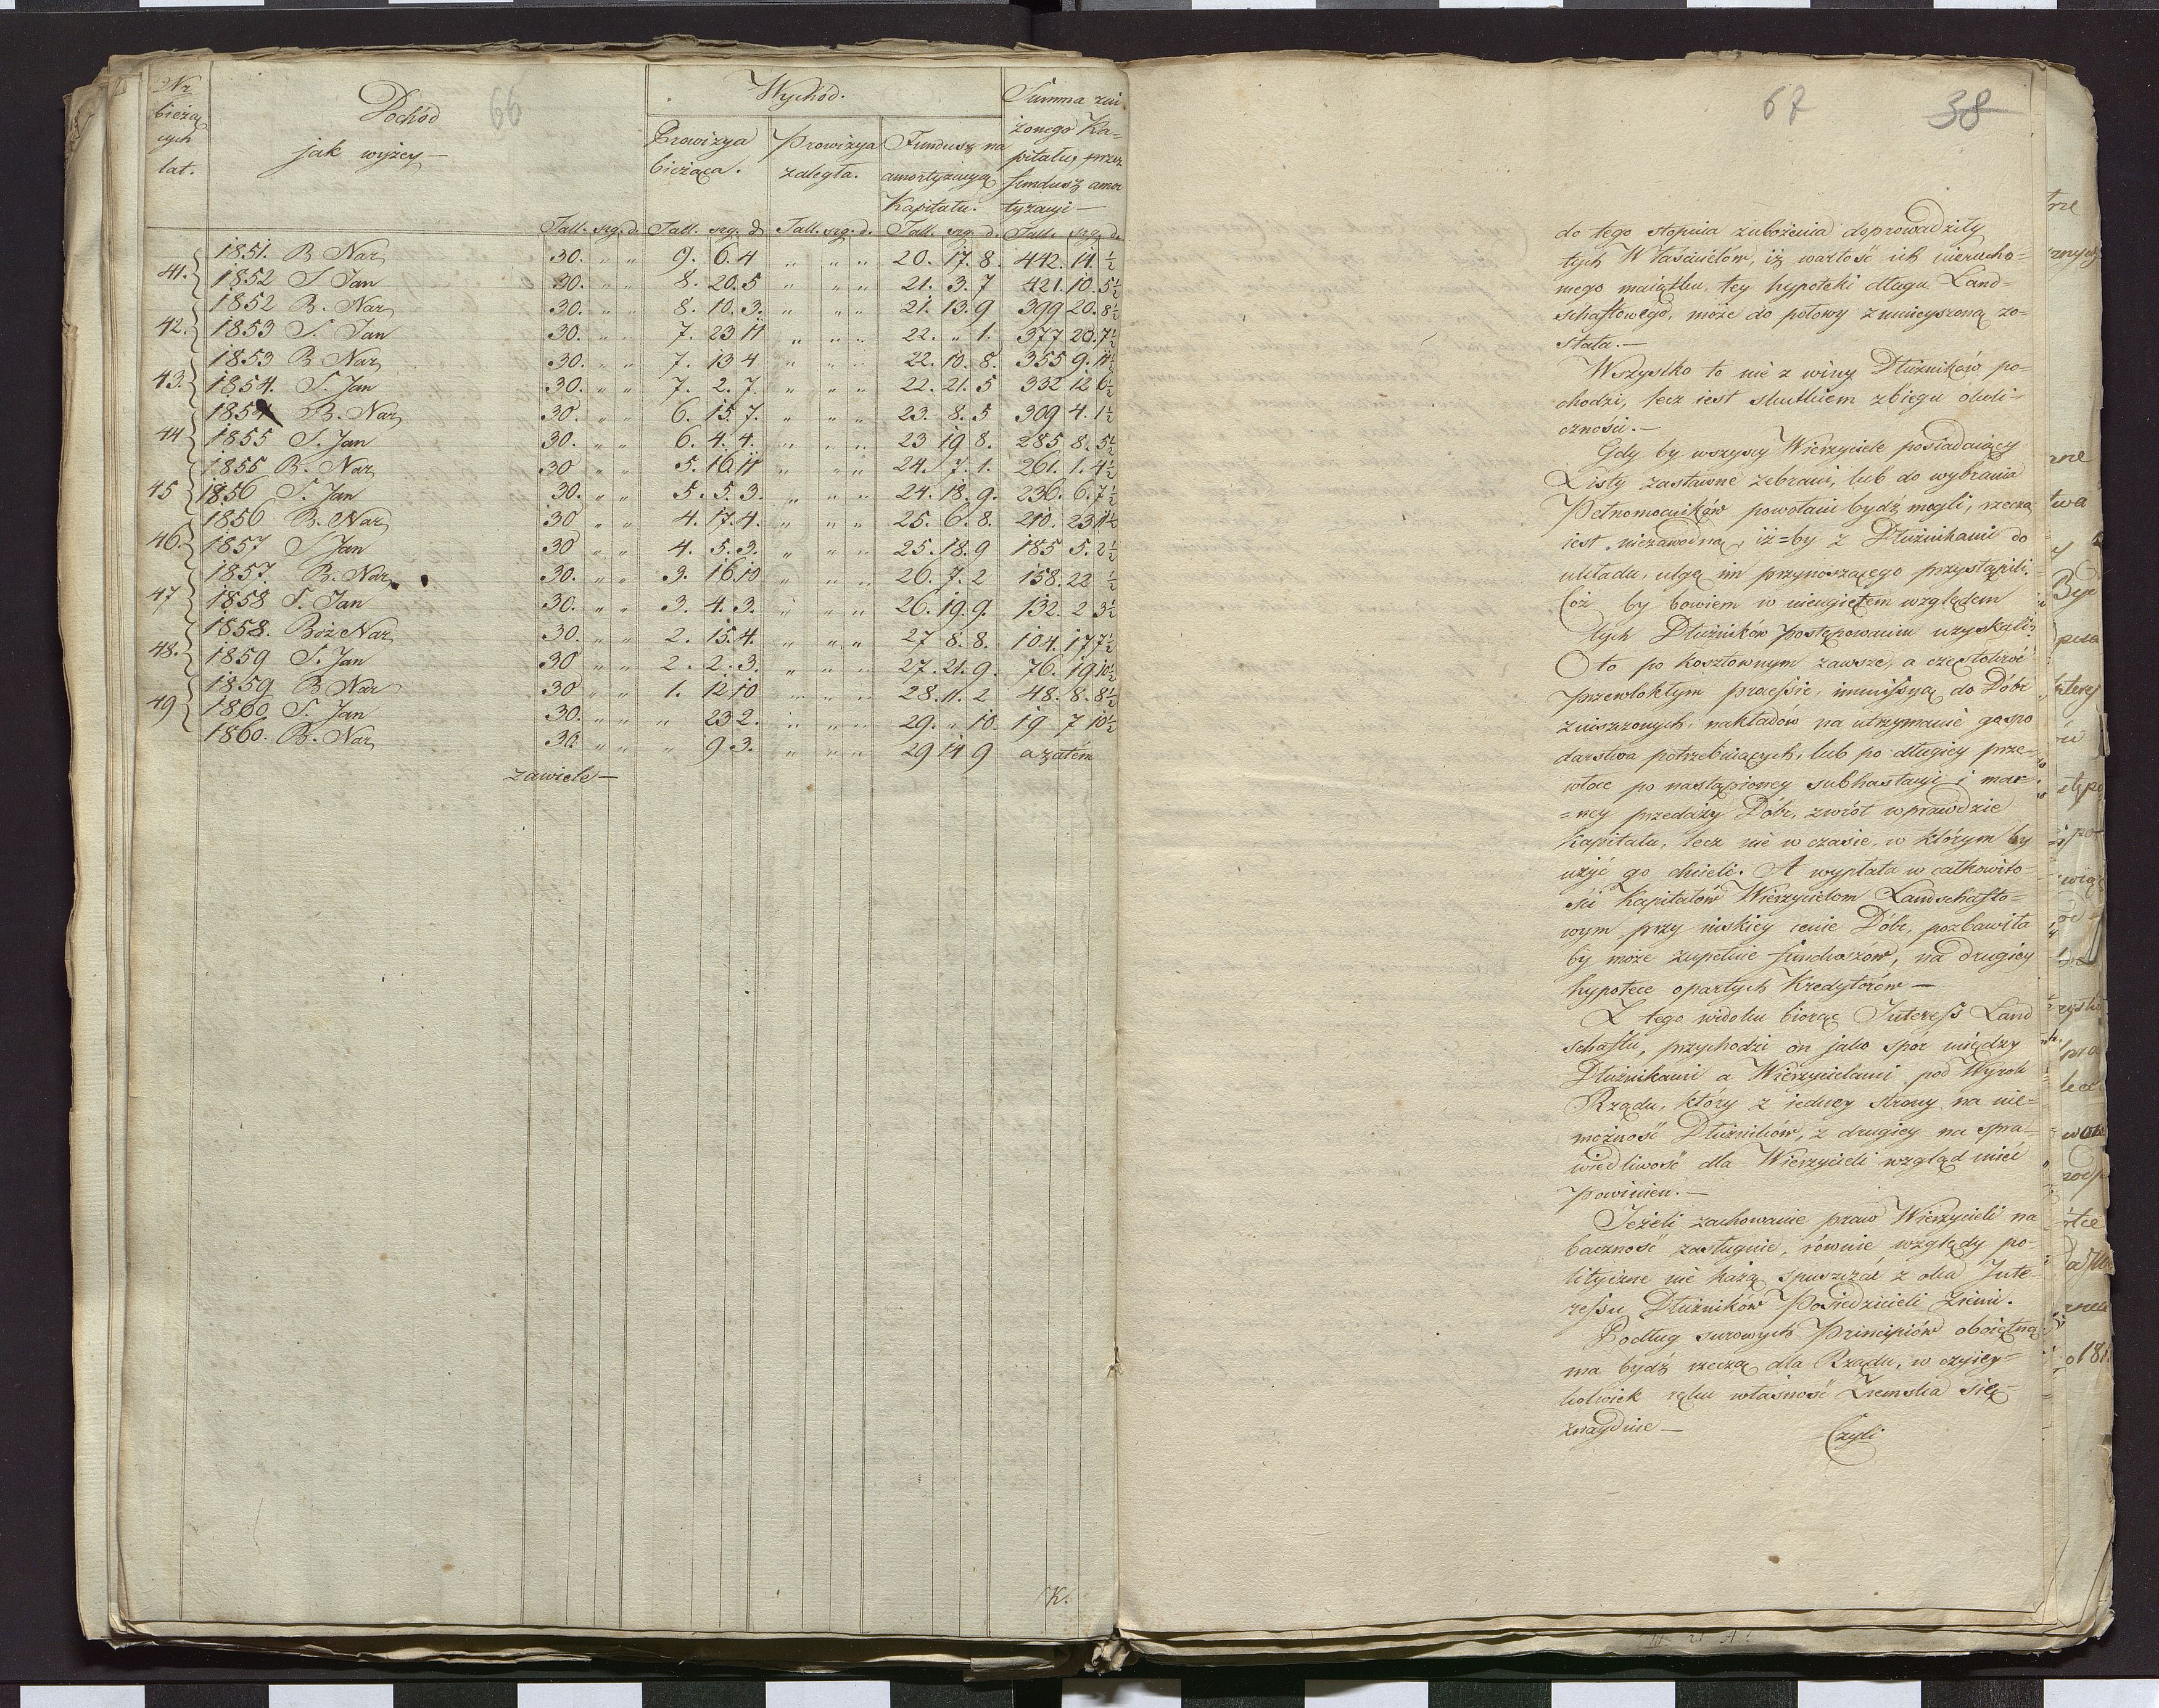 66
Nr
bieżą
cych
lat.
Dochód
jak wyżey —
Wychód.
Prowizya
bieżąca.
Prowizya
zaległa.
Fundusz na
amortyzacyą
Kapitału.
Summa zni
żonego Ka=
pitału, przez
fundusz amor
tyzacyi —
Tall. srg. d. Tall. srg. d. Tall. srg. d. Tall. srg. d. Tall. srg. d.
1851. B Nar 30. " " 9. 6. 4 " " " 20. 17. 8. 442. 14. ½
41. 1852 S Jan 30. " " 8. 20. 5 " " " 21. 3. 7 421. 10. 5½
1852 B. Nar 30. " " 8. 10. 3. " " " 21. 13. 9 399 20. 8½
42. 1853 S. Jan 30. " " 7. 23 11 " " " 22. " 1. 377 20. 7½
1853 B Nar 30. " " 7. 13 4 " " " 22. 10. 8. 355 9. 11½
43. 1854. S. Jan 30. " " 7. 2. 7. " " " 22. 21. 5 332 12 6½
1854 B. Nar 30. " " 6. 15. 7. " " " 23. 8. 5 309 4. 1½
44 1855 S. Jan 30. " " 6. 4. 4. " " " 23 19 8. 285 8. 5½
1855 B. Nar 30 " " 5. 16. 11 " " " 24. 7. 1. 261. 1. 4½
45 1856 S. Jan 30. " " 5. 5. 3. " " " 24. 18. 9. 236. 6. 7½
1856 B. Nar 30 " " 4. 17. 4. " " " 25. 6. 8. 210. 23 11½
46. 1857 S Jan 30 " " 4. 5. 3. " " " 25. 18. 9 185 5. 2½
1857. B. Nar 30. " " 3. 16. 10 " " " 26. 7. 2 158. 22 ½
47 1858 S. Jan 30. " " 3. 4. 3. " " " 26. 19. 9. 132. 2 3½
1858. Boże Nar 30. " " 2. 15. 4. " " " 27 8. 8. 104. 17 7½
48. 1859 S. Jan 30 " " 2. 2. 3. " " " 27. 21. 9. 76. 19 10½
1859 B Nar 30 " " 1. 12 10 " " " 28. 11. 2 48. 8. 8½
49 1860 S. Jan 30. " " " 23 2. " " " 29. " 10. 19 7 10½
1860. B. Nar 30. " " " 9 3. " " " 29 14 9 a zatém
zawiele —
K.
67 38
do tego stopnia zubożenia doprowadziły
tych Właścicielów, iż wartość ich nierucho=
mego maiątku, tey hypoteki długu Land=
schaftowego, może do połowy zmnieyszoną zo=
stała. —
Wszystko to nie z winy Dłużników po=
chodzi, lecz iest skutkiem zbiegu okoli=
czności. —
Gdy by wszyscy Wierzyciele posiadaiący
Listy zastawne zebrani, lub do wybrania
Pełnomocników powołani bydź mogli, rzeczą
iest niezawodną, iż=by z Dłużnikami do
układu, ulgę im przynoszącego przystąpili.
Cóż by bowiem w nieugiętem względem
tych Dłużników postępowaniu uzyskali?
Oto po kosztownym zawsze, a częstokroć
przewlokłym processie, immissyą do Dóbr
zniszczonych, nakładów na utrzymanie gospo
darstwa potrzebuiących, lub po długiey prze=
włoce po nastąpioney subhastacyi i mar=
=ney przedaży Dóbr, zwrót wprawdzie
Kapitału, lecz nie w czasie, w którym by
użyć go chcieli. A wypłata w całkowito=
ści Kapitałów Wierzycielom Landschafto=
wym przy niskiey cenie Dóbr, pozbawiła
by może zupełnie funduszów, na drugiéy
hypotece opartych Kredytórów —
Z tego widoku biorąc Interess Land
schaftu, przychodzi on jako spór między
Dłużnikami a Wierzycielami pod Wyrok
Rządu, który z iedney strony na nie=
możność Dłużników, z drugiey na spra=
wiedliwość dla Wierzycieli wzgląd mieć
powinien. —
Jeżeli zachowanie praw Wierzycieli na
baczność zasługuie, równie względy po=
lityczne nie każą spuszczać z oka Inte=
ressu Dłużników Posiedzicieli Ziemi.
Podług surowych Principiów oboiętną
ma bydź rzeczą dla Rządu, w czyiey=
kolwiek ręku własność Ziemska się
znayduie —
Czyli